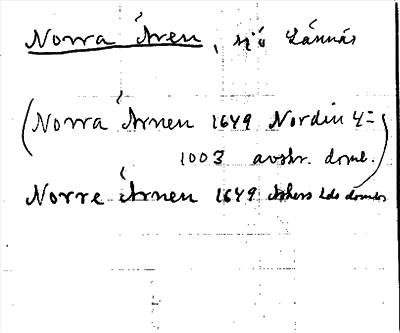 Norra Åren, sjö Lännäs
(Norra Årnen 1649 Nordin 4=
1003 avskr. domb.)
Norre Årnen 1649 domb